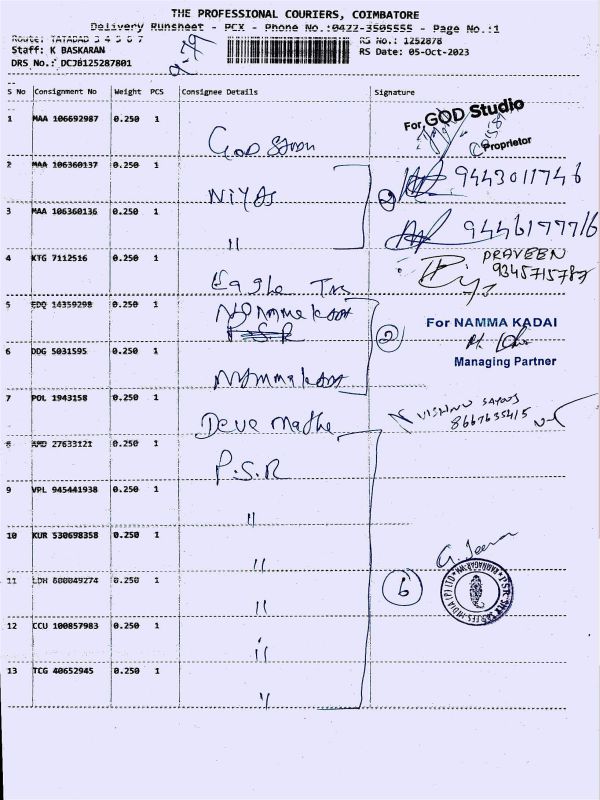 THE PROFESSIONAL COURIERS, COIMBATORE
Delivery Runsheet - PCX - Phone No.:0422-3505555 - Page No.:1
Route: TATADAD 3 4 5 6 7
RS No.: 1252878
Staff: K BASKARAN
RS Date: 05-Oct-2023
DRS No.: DCJB125287801
S No Consignment No Weight PCS Consignee Details Signature
1 MAA 106692987 0.250 1 God
For GOD Studio
Proprietor
2 MAA 106360137 0.250 1 Niyas 2 9443011746
3 MAA 106360136 0.250 1 " 9446177716
4 KTG 7112516 0.250 1 Eagle PRAVEEN
9345715787
5 EDQ 14359298 0.250 1 Nammakadai
P.S.R
2
For NAMMA KADAI
Managing Partner
6 DDG 5031595 0.250 1 Nammakadai
7 POL 1943158 0.250 1 Deva Matha VISHNU
8667635415
8 AMD 27633121 0.250 1 P.S.R
9 VPL 945441938 0.250 1 "
10 KUR 530698358 0.250 1 "
11 LDH 0.250 1 " 6
12 CCU 100857983 0.250 1 "
13 TCG 40652945 0.250 1 "